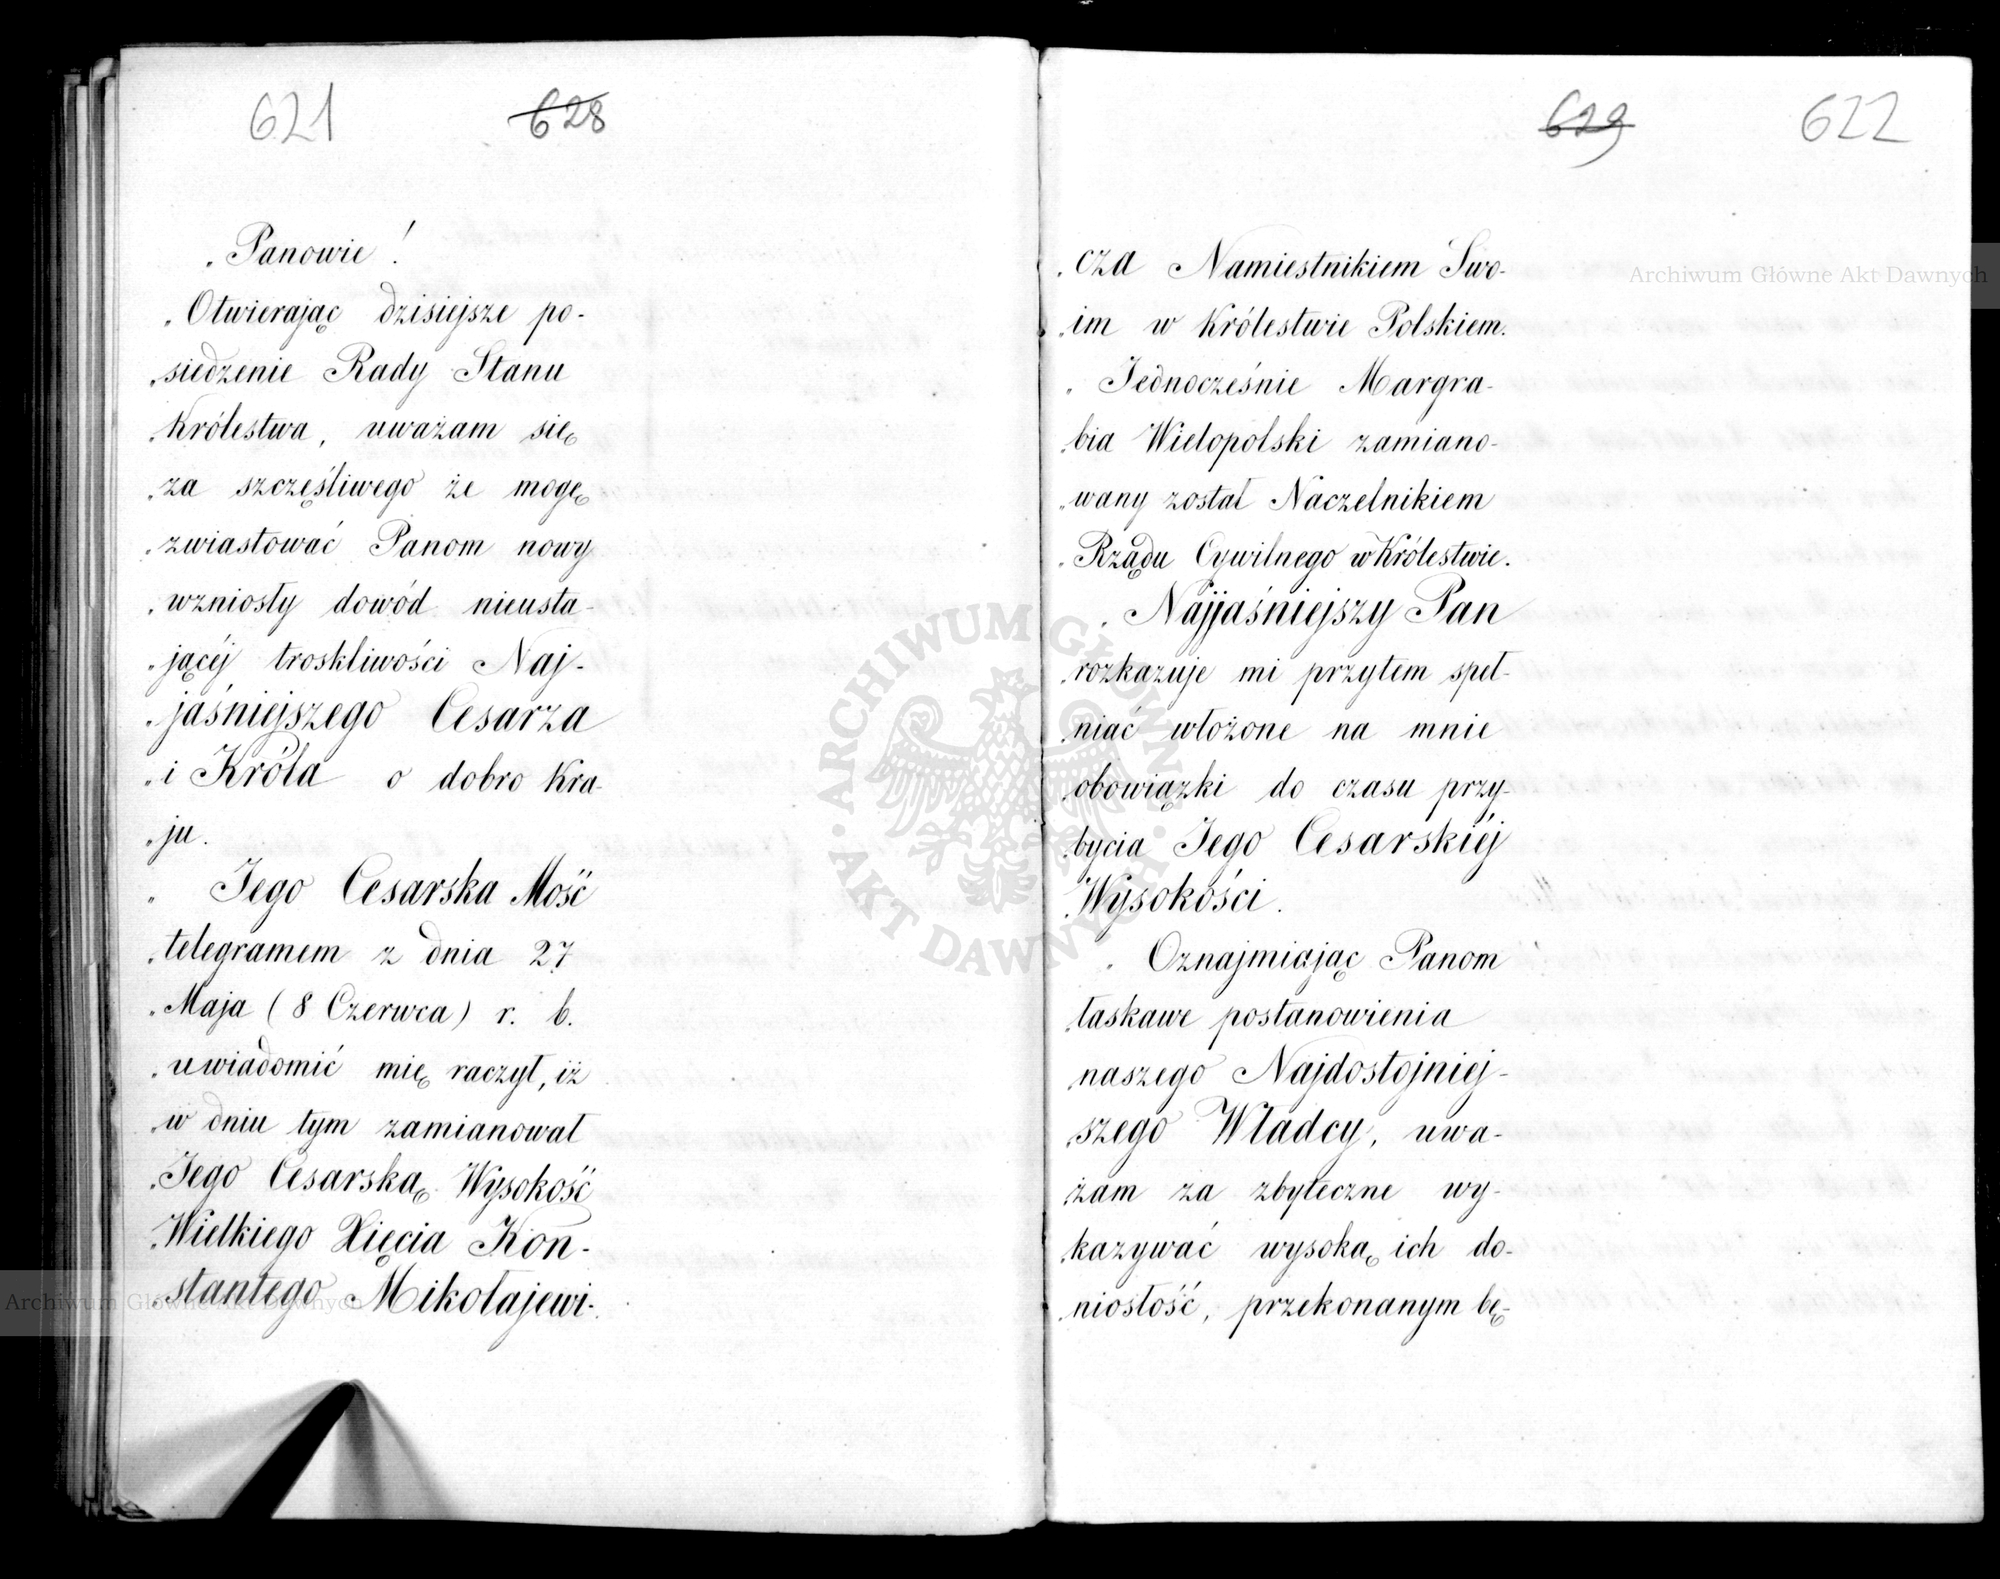 621 628
„Panowie!
„Otwierając dzisiejsze po-
„siedzenie Rady Stanu
„Królestwa, uważam się
„za szczęśliwego że mogę
„zwiastować Panom nowy
„wzniosły dowód nieusta-
„jącéj troskliwości Naj-
„jaśniejszego Cesarza
„i Króla o dobro Kra-
„ju.
„Jego Cesarska Mość
„telegramem z dnia 27
„Maja (8 Czerwca) r. b.
„uwiadomić mię raczył, iż
„w dniu tym zamianował
„Jego Cesarską Wysokość
„Wielkiego Xięcia Kon-
„stantego Mikołajewi-
629 622
„cza Namiestnikiem Swo-
„im w Królestwie Polskiem.
„Jednocześnie Margra-
„bia Wielopolski zamiano-
„wany został Naczelnikiem
„Rządu Cywilnego w Królestwie.
„Najjaśniejszy Pan
„rozkazuje mi przytem speł-
„niać włożone na mnie
„obowiązki do czasu przy-
„bycia Jego Cesarskiéj
„Wysokości.
„Oznajmiając Panom
„łaskawe postanowienia
„naszego Najdostojniej-
„szego Władcy, uwa-
„żam za zbyteczne wy-
„kazywać wysoką ich do-
„niosłość, przekonanym bę-
Archiwum Główne Akt Dawnych
ARCHIWUM GŁÓWNE AKT DAWNYCH
Archiwum Główne Akt Dawnych